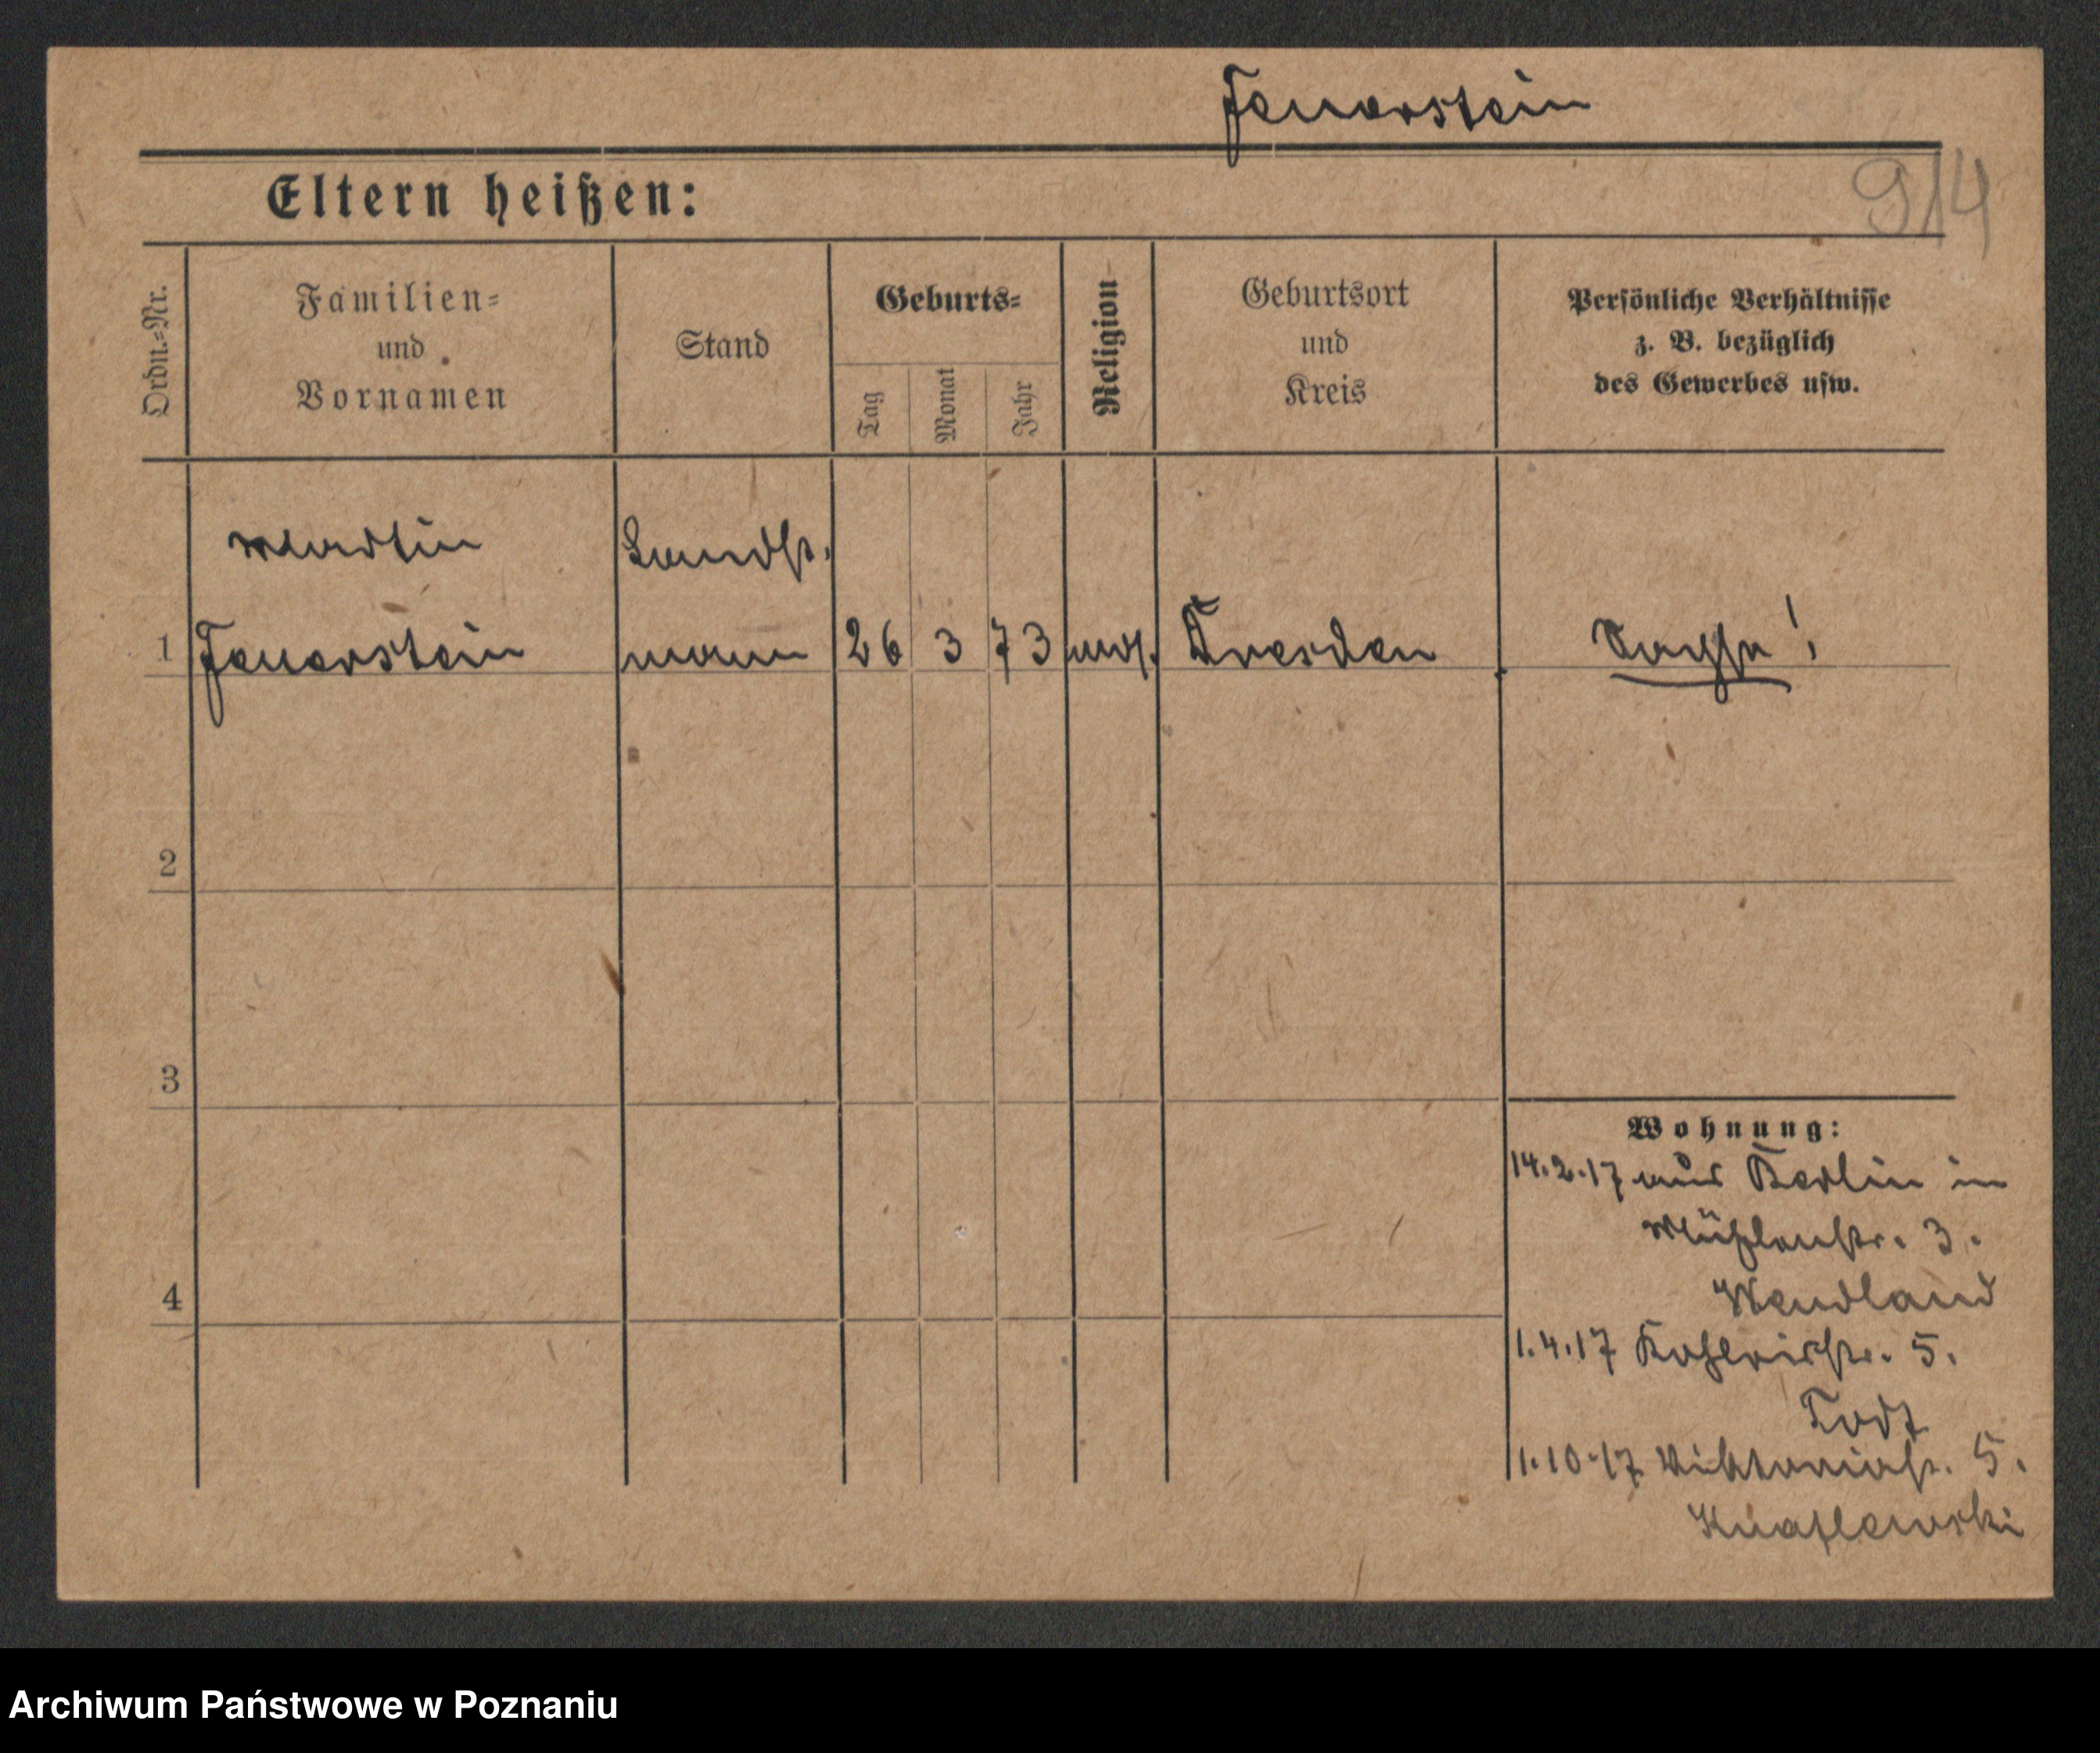 Feuerstein
914
Eltern heißen:
Ordn.-Nr.
Familien-
und
Vornamen
Stand
Geburts-
Tag
Monat
Jahr
Religion
Geburtsort
und
Kreis
Persönliche Verhältnisse
z. B. bezüglich
des Gewerbes usw.
Martin
Landst.
1 Feuerstein mann 26 3 73 Dresden Sachse!
2
3
4
Wohnung:
14.2.17 aus Berlin in
Mühlenstr. 3.
Wendland
1.4.17 5.
Todt
1.10.17 Viktoriastr. 5.
Archiwum Państwowe w Poznaniu